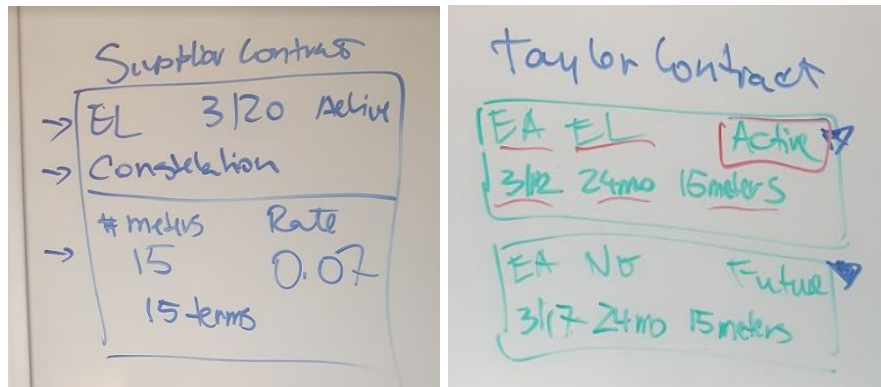 Supplier Contract
EL 3/20 Active
Constelation
# meters Rate
15 0.07
15 terms
Taylor Contract
EA EL Active
3/12 24mo 15meters
EA Future
3/17 24mo 15meters